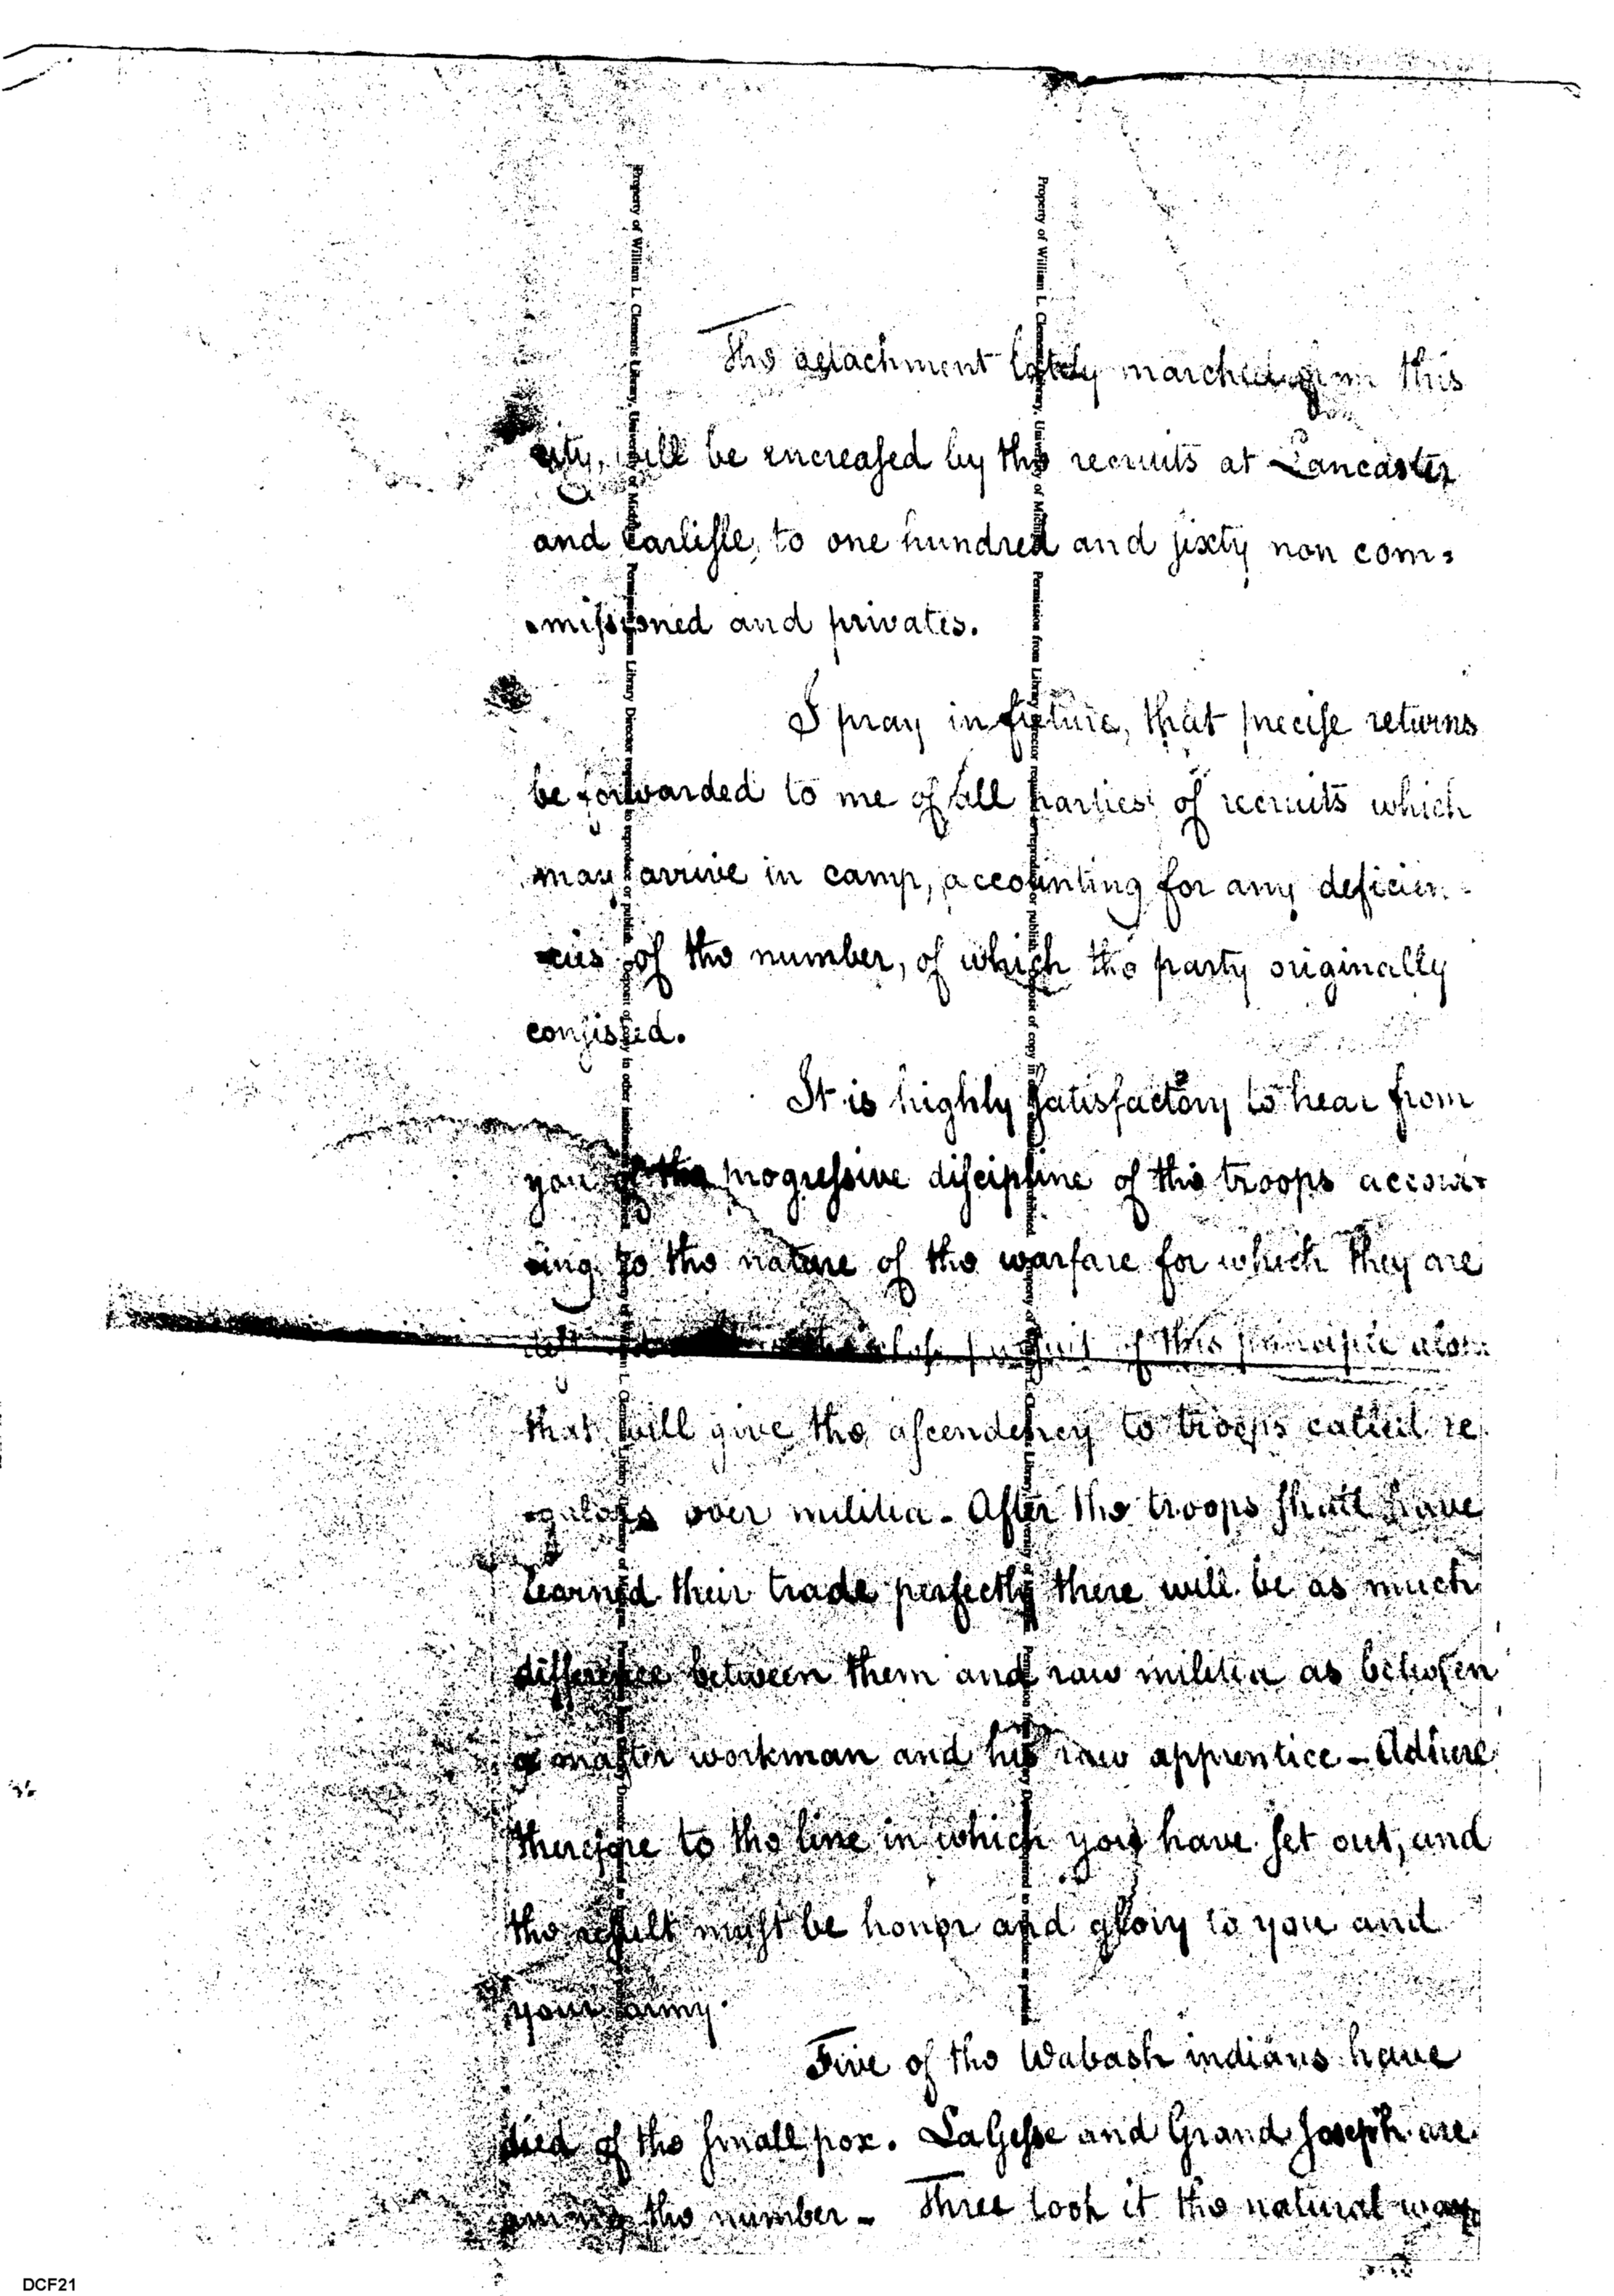 The detachment lately marched from this
city, will be encreased by the recruits at Lancaster
and Carlisle, to one hundred and sixty non com=
=missioned and privates.
I pray in future, that precise returns
be forwarded to me of all parties of recruits which
may arrive in camp, accounting for any deficien=
=cies of the number, of which the party originally
consisted.
It is highly satisfactory to hear from
you of the progressive discipline of the troops accor=
=ding to the nature of the warfare for which they are
pursuit of this principle alone
that will give the ascendency to troops called re=
=gulars over militia - After the troops shall have
learned their trade perfectly there will be as much
difference between them and raw militia as between
a master workman and his raw apprentice - Adhere
therefore to the line in which you have set out, and
the result must be honor and glory to you and
your army.
Five of the Wabash indians have
died of the small pox. LaGesse and Grand Joseph are
among the number - Three took it the natural way
Property of William L. Clements Library, University of Michigan. Permission from Library Director required to reproduce or publish. Deposit of copy in other institutions prohibited.
Property of William L. Clements Library, University of Michigan. Permission from Library Director required to reproduce or publish.
Property of William L. Clements Library, University of Michigan. Permission from Library Director required to reproduce or publish. Deposit of copy in other institutions prohibited.
Property of William L. Clements Library, University of Michigan. Permission from Library Director required to reproduce or publish
DCF21